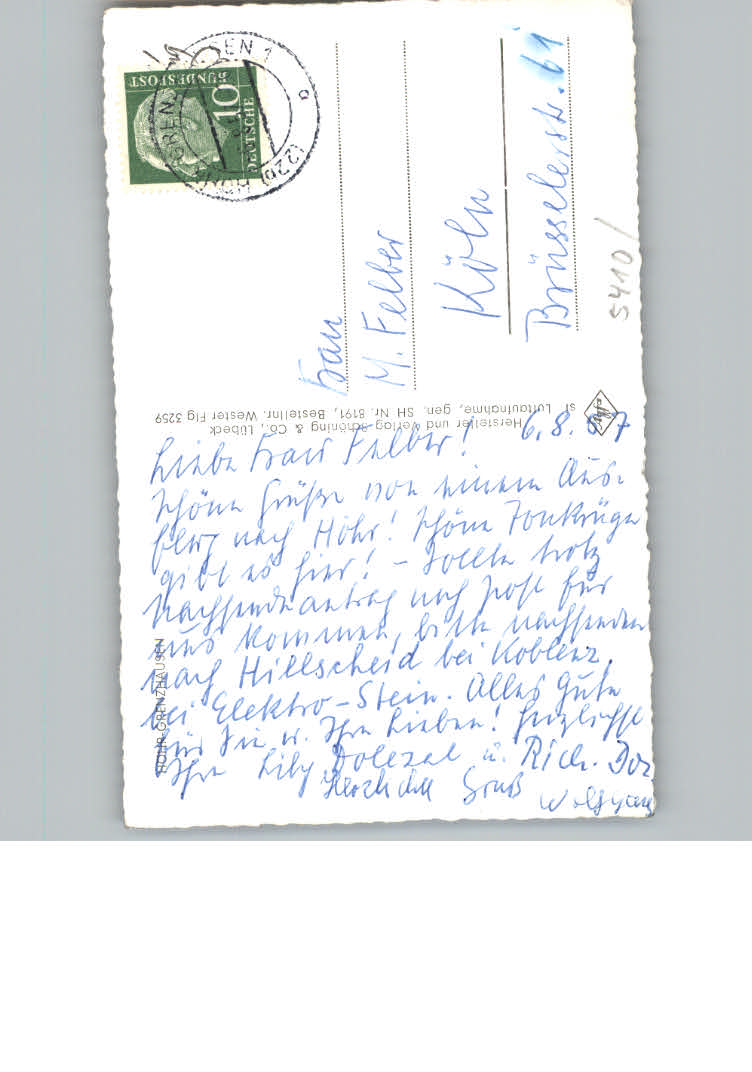 Liebe Frau Felber! 6.8.57
Schöne Grüße von einem Aus-
flug nach Höhr! Schöne Tonkrüge
gibt es hier! – Sollte trotz
Nachsendeantrag noch Post für
uns kommen, bitte nachsenden
nach Hillscheid bei Koblenz,
bei Elektro-Stein. Alles Gute
für Sie u. Ihre Lieben! Herzlichst
Ihre Lily Dolezal u. Rich. Dol
Herzlichen Gruß Wolfgang
Frau
M. Felber
Köln
Brüsselerstr. 61
5410/
Hersteller und Verlag Schöning & Co., Lübeck
sf Luftaufnahme, gen. SH Nr. 8191, Bestellnr. Wester Flg 3259
HÖHR-GRENZHAUSEN
DEUTSCHE
BUNDESPOST
10
(22b)